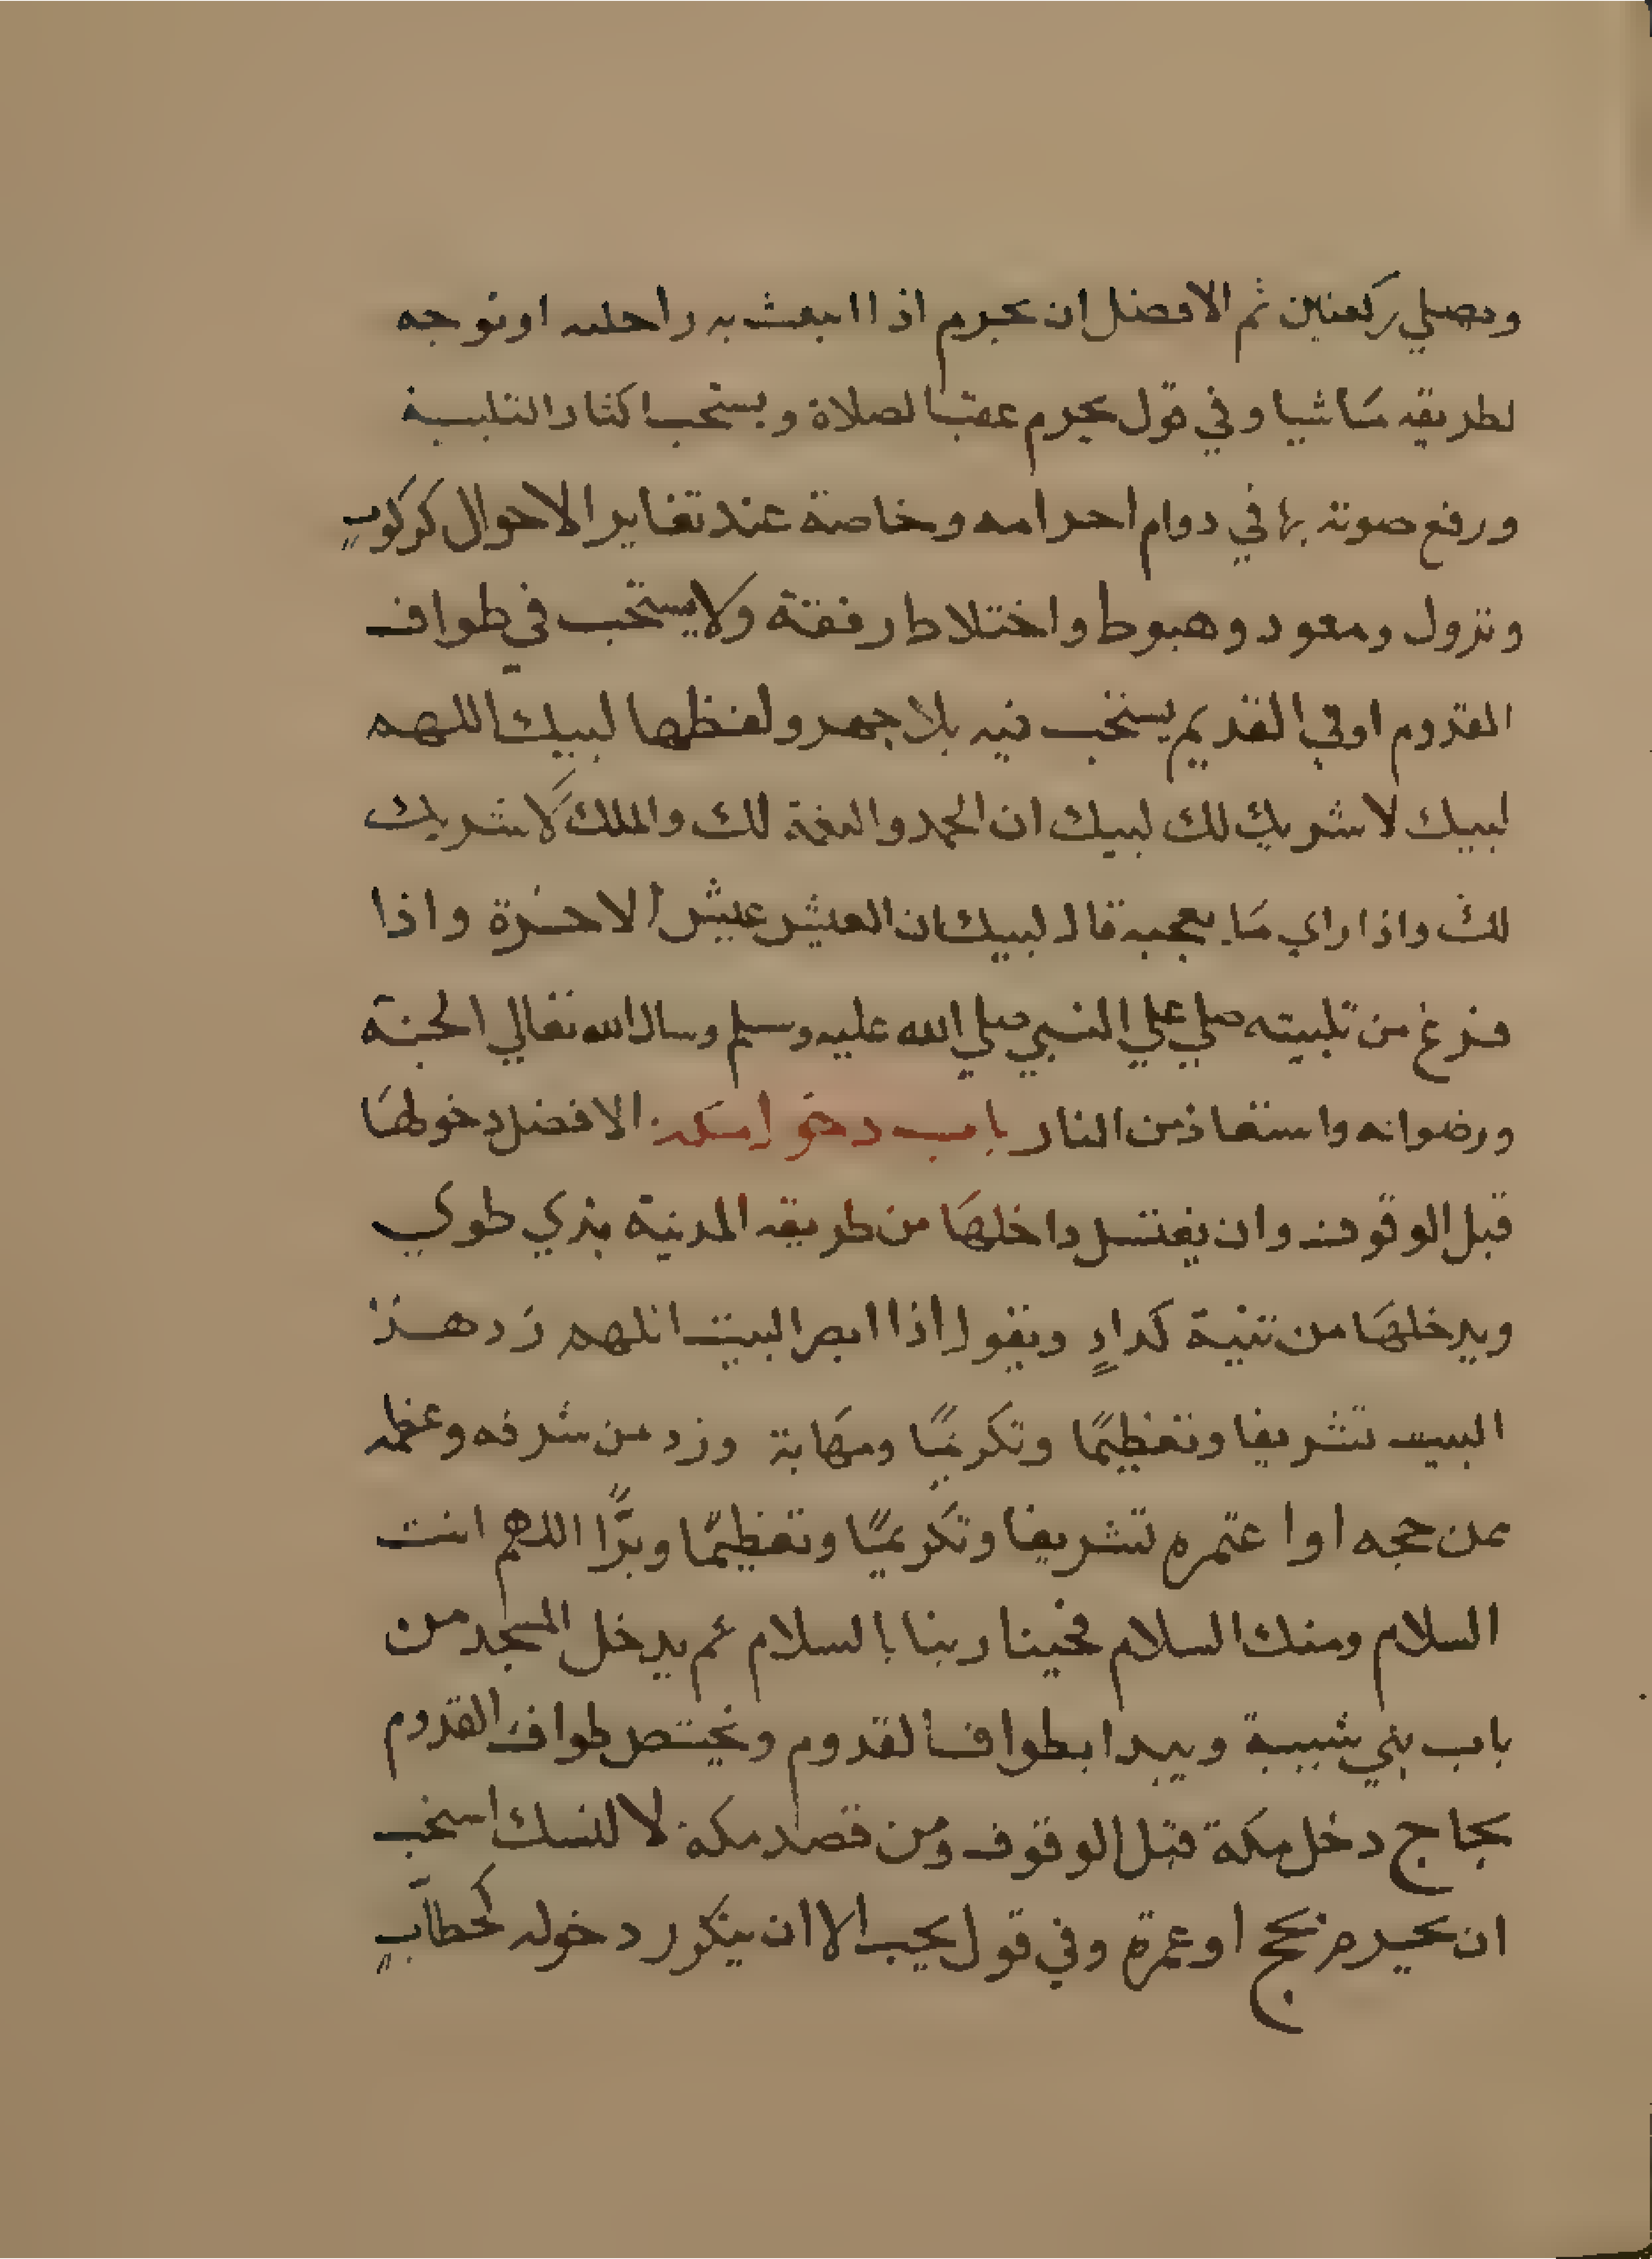 ويصلي ركعتين ثم الافضل ان يحرم اذا انبعثت به راحلته او توجه
لطريقه ماشيا وفي قول يحرم عقب الصلاة ويستحب اكثار التلبية
ورفع صوته بها في دوام احرامه وخاصة عند تغاير الاحوال كركوب
ونزول وصعود وهبوط واختلاط رفقة ولا يستحب في طواف
القدوم وفي القديم يستحب فيه بلا جهر ولفظها لبيك اللهم
لبيك لا شريك لك لبيك ان الحمد والنعمة لك والملك لا شريك
لك واذا راي مَا يعجبه قال لبيك ان العيش عيش الاخرة واذا
فرغ من تلبيته صلي علي النبي صلي الله عليه وسلم وسال الله تعالي الجنة
ورضوانه واستعاذ من النار باب دخول مكة الافضل دخولهَا
قبل الوقوف وان يغتسل داخلهَا من طريقه المدينة بذي طوي
ويدخلهَا من ثنية كداءٍ ويقول اذا ابصر البيت اللهم زد هذا
البيت تشريفا وتعظيمًا وتكريمًا ومهَابة وزد من شرفه وعظمه
ممن حجه او اعتمره تشريفا وتكريمًا وتعظيمًا وبرًّا اللهم انت
السلام ومنك السلام فحينا ربنا بالسلام ثم يدخل المسجد من
باب بني شيبة ويبدا بطواف القدوم ويختص طواف القدوم
بحاج دخل مكة قبل الوقوف ومن قصد مكة لا لنسك استحب
ان يحرم بحج او عمرة وفي قول يجب الا ان يتكرر دخوله كحطابٍ